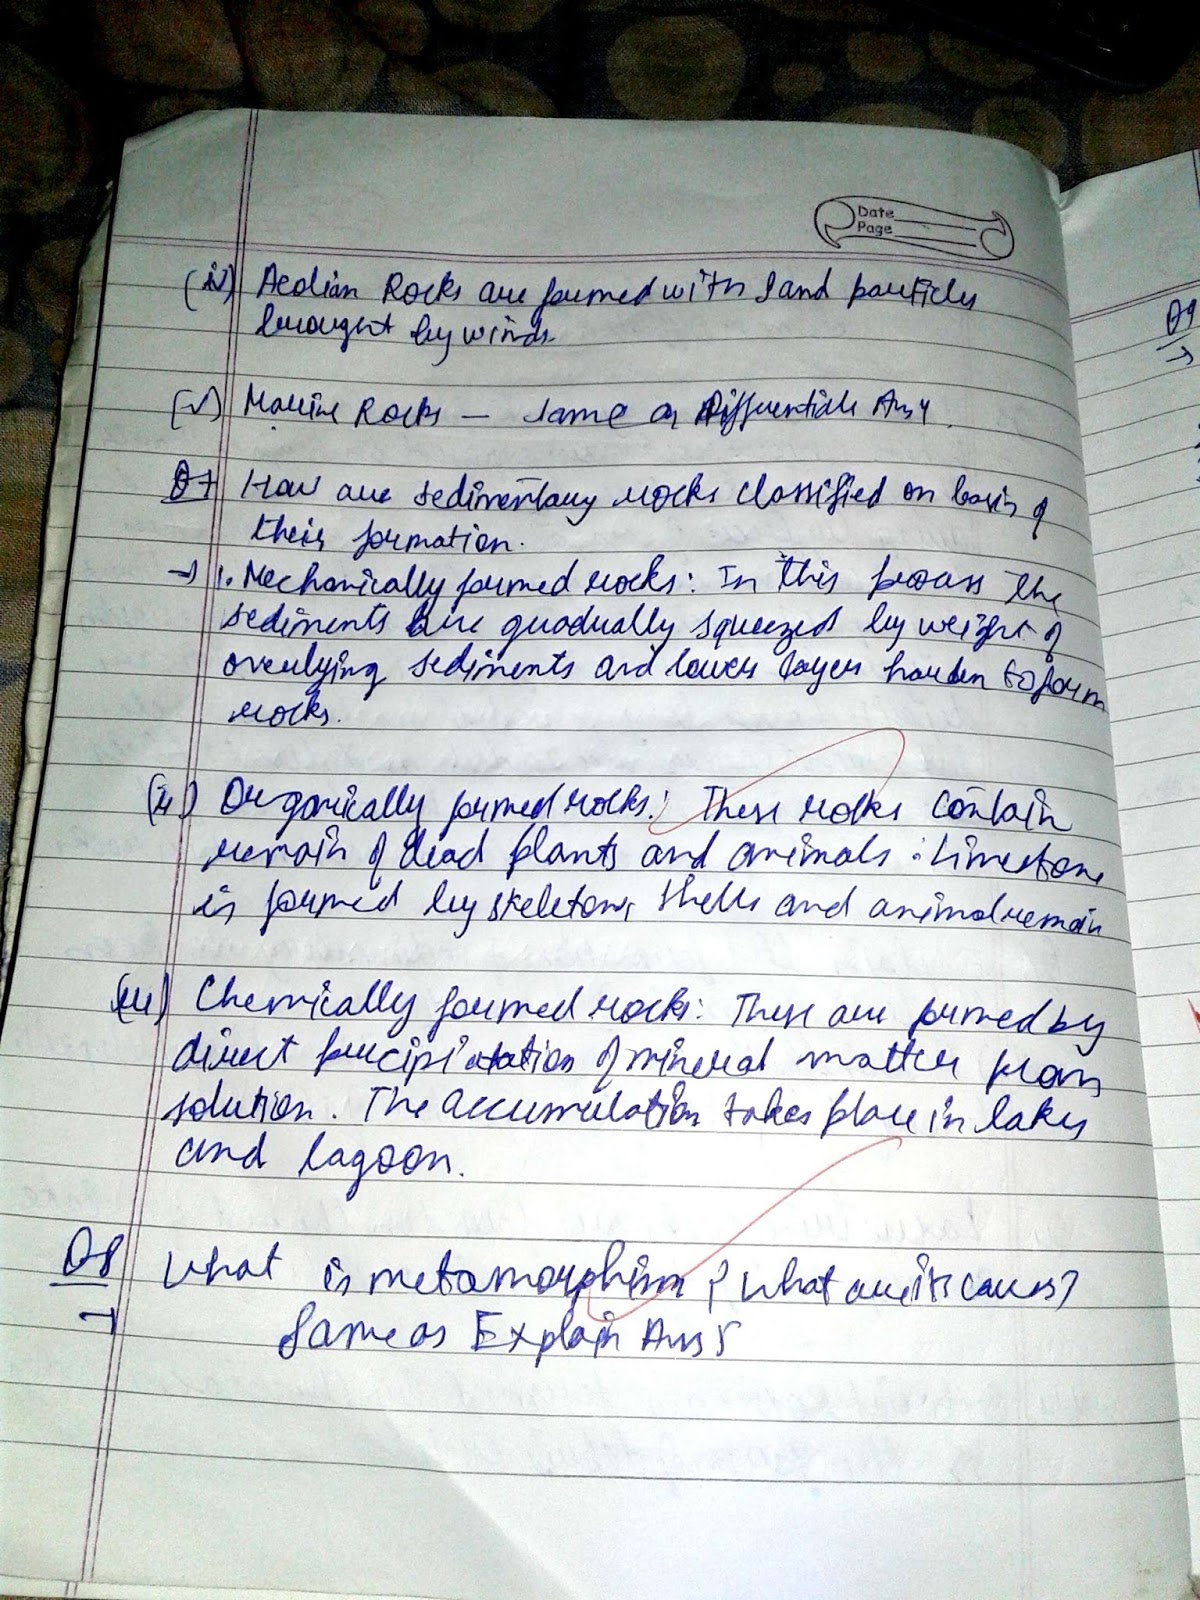 Date
Page
(iv) Aeolian Rocks are formed with sand particles
brought by winds.
(v) Marine Rocks — same as Differentiate Ans 4.
Q7 How are sedimentary rocks classified on basis of
their formation.
→ 1. Mechanically formed rocks: In this process the
sediments are gradually squeezed by weight of
overlying sediments and lower layer harden to form
rocks.
(ii) Organically formed rocks: These rocks contain
remain of dead plants and animals. Limestone
is formed by skeleton, shells and animal remain
(iii) Chemically formed rocks: These are formed by
direct precipitation of mineral matter from
solution. The accumulation takes place in lakes
and lagoon.
Q8 What is metamorphism? What are its causes?
→ Same as Explain Ans 5
Q9
→